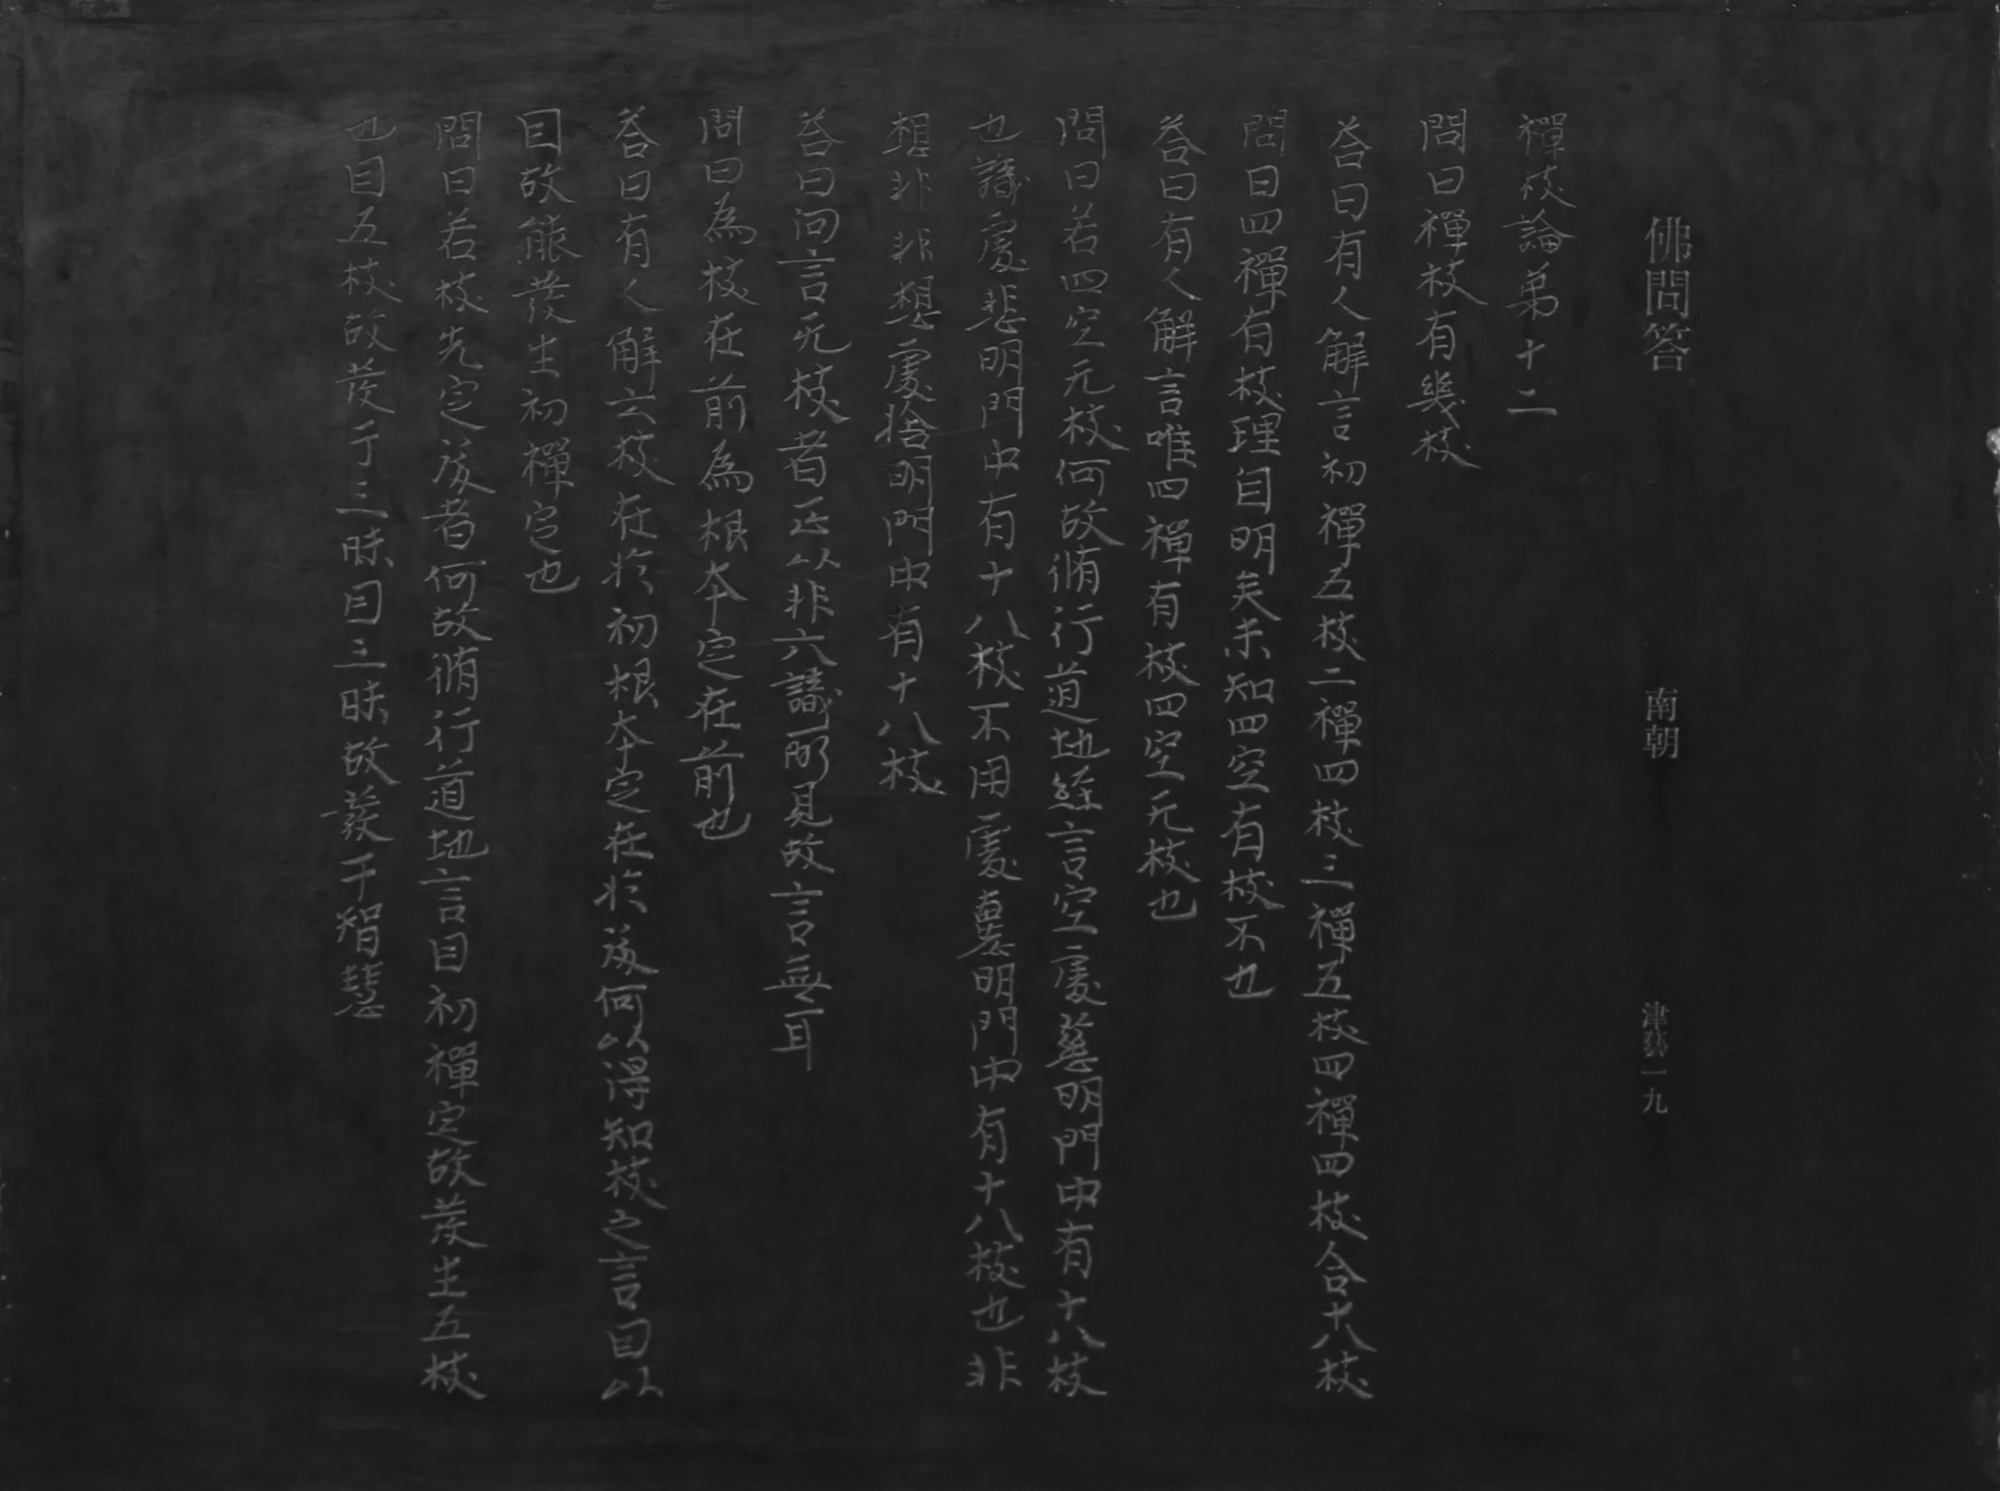 佛問答 南朝 津藝一九
禪枝論弟十二
問曰禪枝有幾枝
荅曰有人解言初禪五枝二禪四枝三禪五枝四禪四枝合十八枝
問曰四禪有枝理自明矣未知四空有枝不也
荅曰有人解言唯四禪有枝四空无枝也
問曰若四空无枝何故脩行道地經言空處慈明門中有十八枝
也識處悲明門中有十八枝不用處憙明門中有十八枝也非
想非非想處捨明門中有十八枝
荅曰向言无枝者正以非六識所見故言無耳
問曰為枝在前為根本定在前也
荅曰有人解云枝在於初根本定在於後何以得知枝之言因以
因故能發生初禪定也
問曰若枝先定後者何故脩行道地言因初禪定故發生五枝
也因五枝故發于三昧因三昧故發于智慧